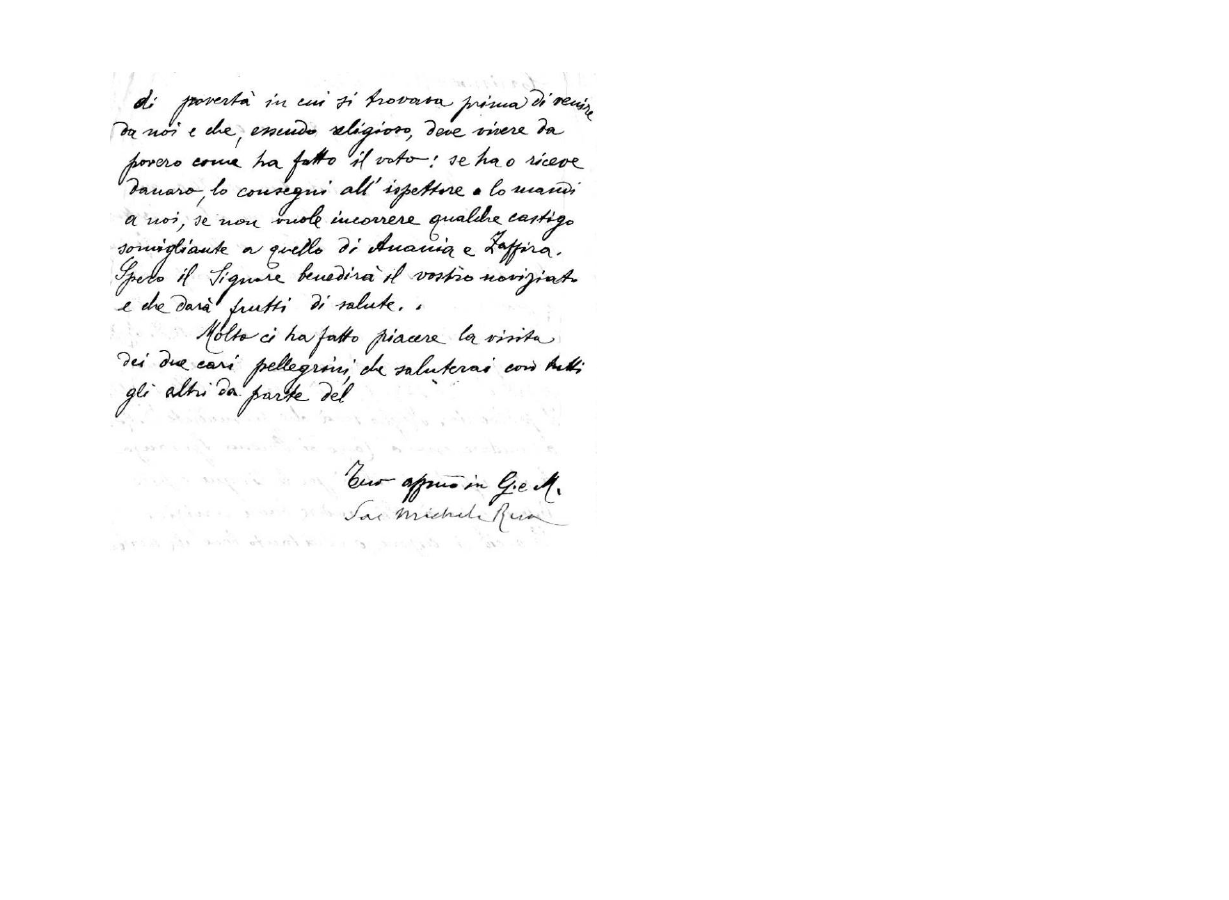 di povertà in cui si trovava prima di venire
da noi e che, essendo religioso, deve vivere da
povero come ha fatto il voto: se ha o riceve
danaro, lo consegni all' ispettore o lo mandi
a noi, se non vuole incorrere qualche castigo
somigliante a quello di Anania e Zaffira.
Spero il Signore benedirà il vostro noviziato
e che darà frutti di salute.
Molto ci ha fatto piacere la visita
dei due cari pellegrini, che saluterai con tutti
gli altri da parte del
Tuo affmo in G. e M.
Sac Michele Rua